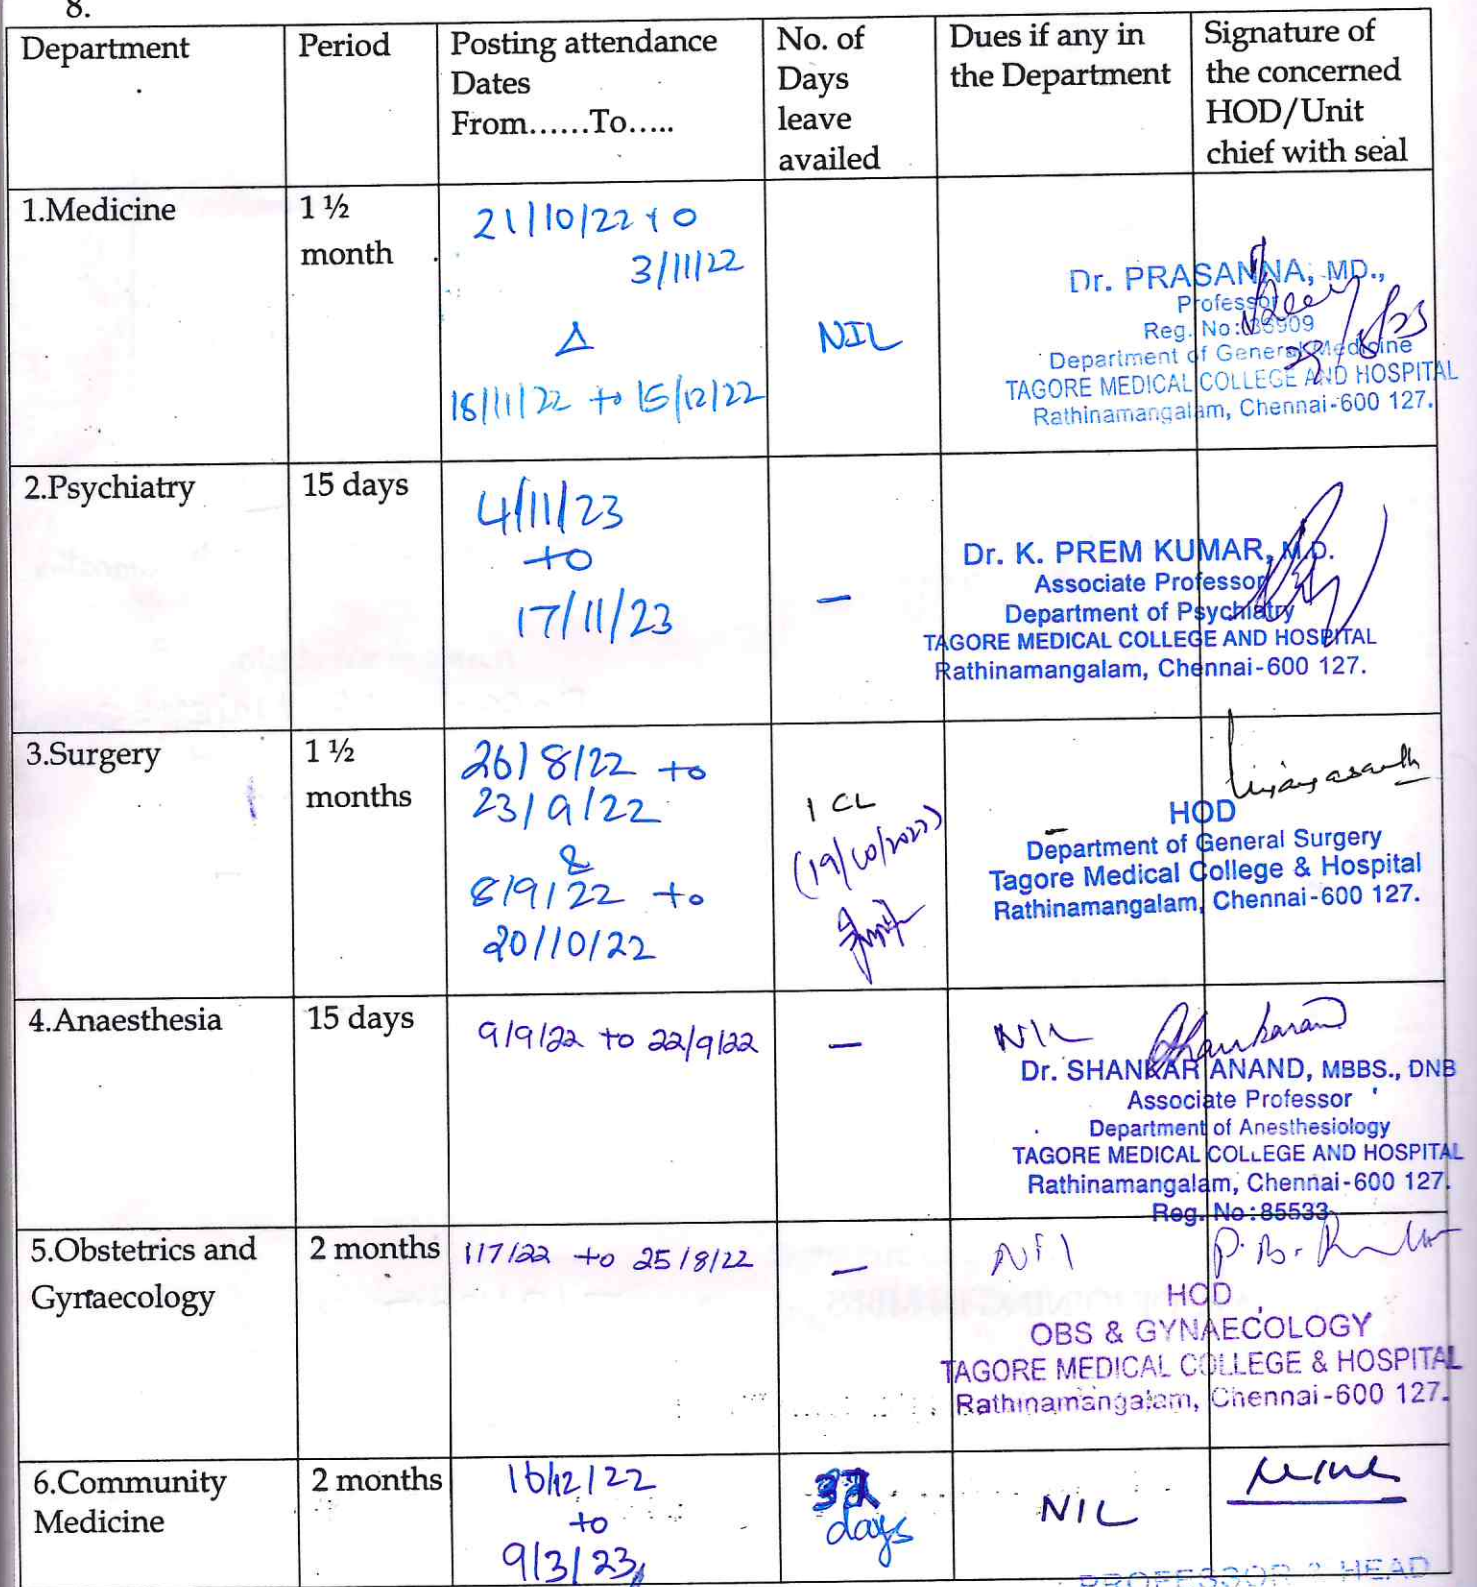 8.
Department
Period
Posting attendance
Dates
From......To.....
No. of
Days
leave
availed
Dues if any in
the Department
Signature of
the concerned
HOD/Unit
chief with seal
1.Medicine
1 ½
month
21/10/22 to
3/11/22
&
18/11/22 to 15/12/22
NIL
Dr. PRASANNA, MD.,
Professor
Reg. No:
Department of General Medicine
TAGORE MEDICAL COLLEGE AND HOSPITAL
Rathinamangalam, Chennai-600 127.
2.Psychiatry
15 days
4/11/23
to
17/11/23
–
Dr. K. PREM KUMAR, M.D.
Associate Professor
Department of Psychiatry
TAGORE MEDICAL COLLEGE AND HOSPITAL
Rathinamangalam, Chennai-600 127.
3.Surgery
1 ½
months
26/8/22 to
23/9/22
&
8/9/22 to
20/10/22
1 CL
(19/10/2022)
–
HOD
Department of General Surgery
Tagore Medical College & Hospital
Rathinamangalam, Chennai-600 127.
4.Anaesthesia
15 days
9/9/22 to 22/9/22
–
NIL
Dr. SHANKAR ANAND, MBBS., DNB
Associate Professor
Department of Anesthesiology
TAGORE MEDICAL COLLEGE AND HOSPITAL
Rathinamangalam, Chennai-600 127.
Reg. No:85533
5.Obstetrics and
Gynaecology
2 months
1/7/22 to 25/8/22
–
Nil
HOD
OBS & GYNAECOLOGY
TAGORE MEDICAL COLLEGE & HOSPITAL
Rathinamangalam, Chennai-600 127.
6.Community
Medicine
2 months
16/12/22
to
9/3/23
days
NIL
PROFESSOR & HEAD